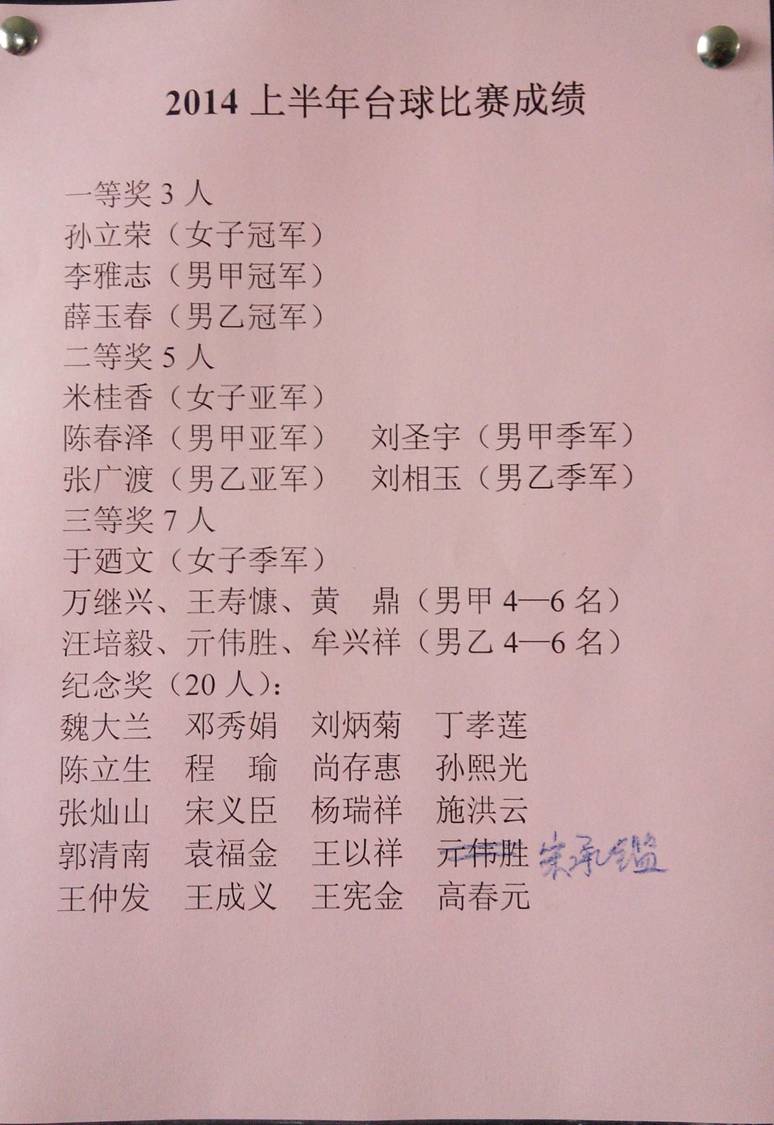 2014 上半年台球比赛成绩
一等奖 3 人
孙立荣（女子冠军）
李雅志（男甲冠军）
薛玉春（男乙冠军）
二等奖 5 人
米桂香（女子亚军）
陈春泽（男甲亚军） 刘圣宇（男甲季军）
张广渡（男乙亚军） 刘相玉（男乙季军）
三等奖 7 人
于廼文（女子季军）
万继兴、王寿慷、黄　鼎（男甲 4—6 名）
汪培毅、亓伟胜、牟兴祥（男乙 4—6 名）
纪念奖（20 人）：
魏大兰 邓秀娟 刘炳菊 丁孝莲
陈立生 程　瑜 尚存惠 孙熙光
张灿山 宋义臣 杨瑞祥 施洪云
郭清南 袁福金 王以祥 亓伟胜 宋承鑑
王仲发 王成义 王宪金 高春元